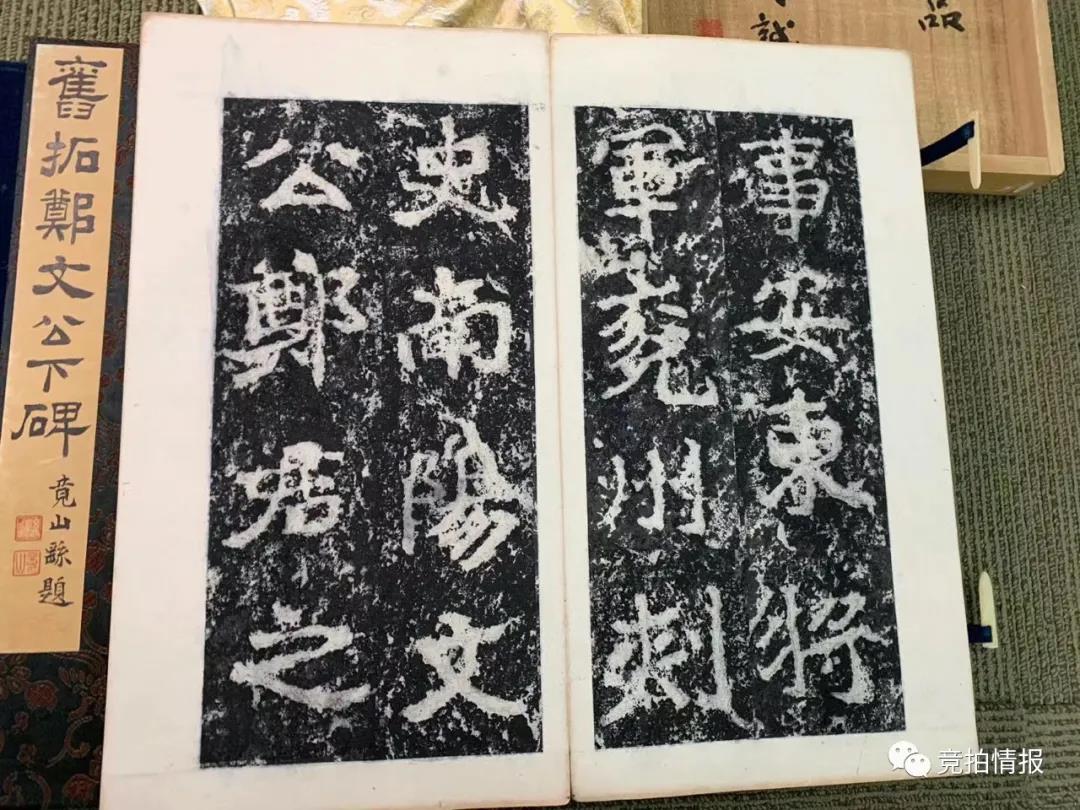 事安東將
軍兗州刾
史南陽文
公鄭君之
舊拓鄭文公下碑
竟山繇題
品
竞拍情报